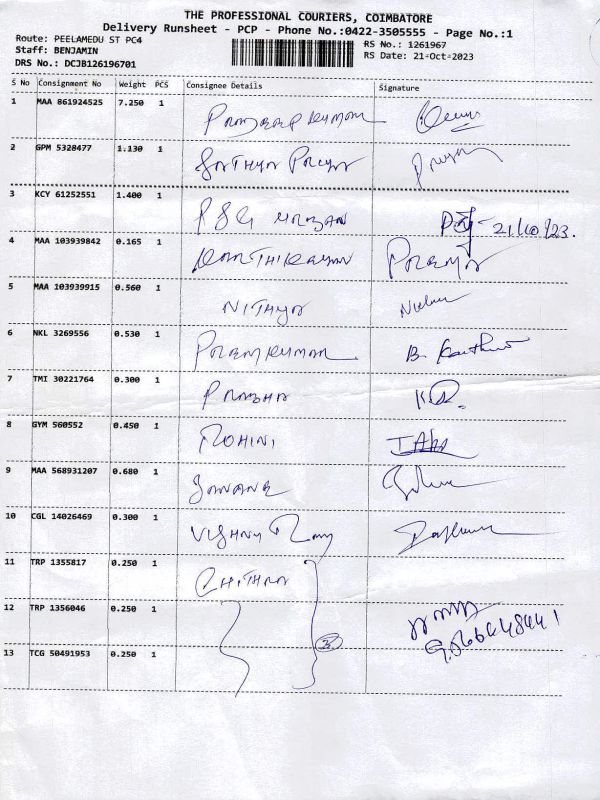 THE PROFESSIONAL COURIERS, COIMBATORE
Delivery Runsheet - PCP - Phone No.:0422-3505555 - Page No.:1
Route: PEELAMEDU ST PC4
RS No.: 1261967
Staff: BENJAMIN
RS Date: 21-Oct-2023
DRS No.: DCJB126196701
S No Consignment No Weight PCS Consignee Details Signature
1 MAA 861924525 7.250 1
2 GPM 5328477 1.130 1 SATHYA PRIYA Priya
3 KCY 61252551 1.400 1 PSG 21/10/23.
4 MAA 103939842 0.165 1 KARTHIKEYAN
5 MAA 103939915 0.560 1 NITHYA
6 NKL 3269556 0.530 1 PREMKUMAR B.
7 TMI 30221764 0.300 1 PRABHA
8 GYM 560552 0.450 1 ROHINI
9 MAA 568931207 0.680 1
10 CGL 14026469 0.300 1 VISHNU
11 TRP 1355817 0.250 1 CHITHRA
12 TRP 1356046 0.250 1
3
13 TCG 50491953 0.250 1